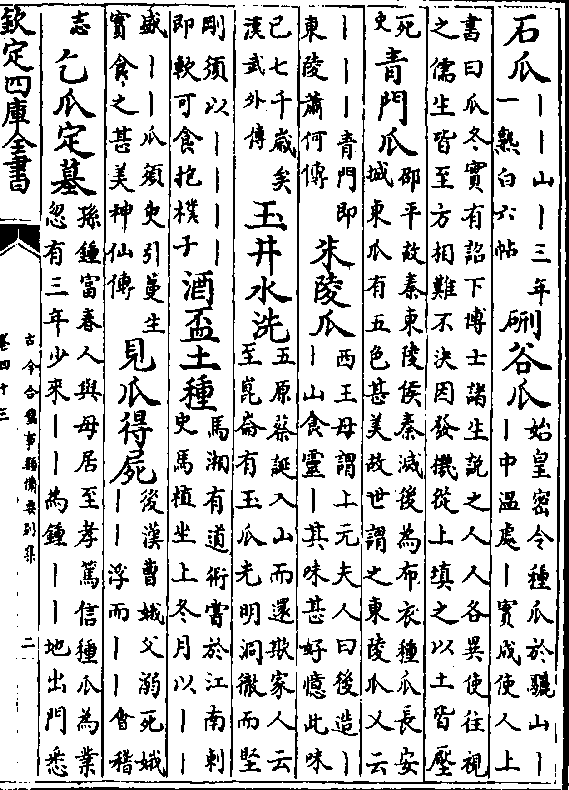 石瓜
丨丨山丨三年
一熟白六帖
硎谷瓜
始皇密令種瓜於驪山丨
丨中温處丨實成使人上
書曰瓜冬實有詔下博士諸生說之人人各異使往視
之儒生皆至方相難不決因發機從上填之以土皆壓
死
史
青門瓜
邵平故秦東陵侯秦滅後為布衣種瓜長安
城東瓜有五色甚美故世謂之東陵瓜又云
丨丨丨青門即
東陵蕭何傳
朱陵瓜
西王母謂上元夫人曰後造丨
丨山食靈丨其味甚好憶此味
已七千歲矣
漢武外傳
玉井水洗
五原蔡誕入山而還欺家人云
至崑崙有玉瓜光明洞徹而堅
剛須以丨丨丨丨
即軟可食抱樸子
酒盃土種
馬湘有道術嘗於江南刺
史馬植坐上冬月以丨丨
盛丨丨瓜須臾引蔓生
實食之甚美神仙傳
見瓜得屍
後漢曹娥父溺死娥
丨丨浮而丨丨會稽
志
乞瓜定墓
孫鍾富春人與母居至孝篤信種瓜為業
忽有三年少來丨丨為鍾丨丨地出門悉
欽定四庫全書
古今合璧事類備要别集
卷四十三
二